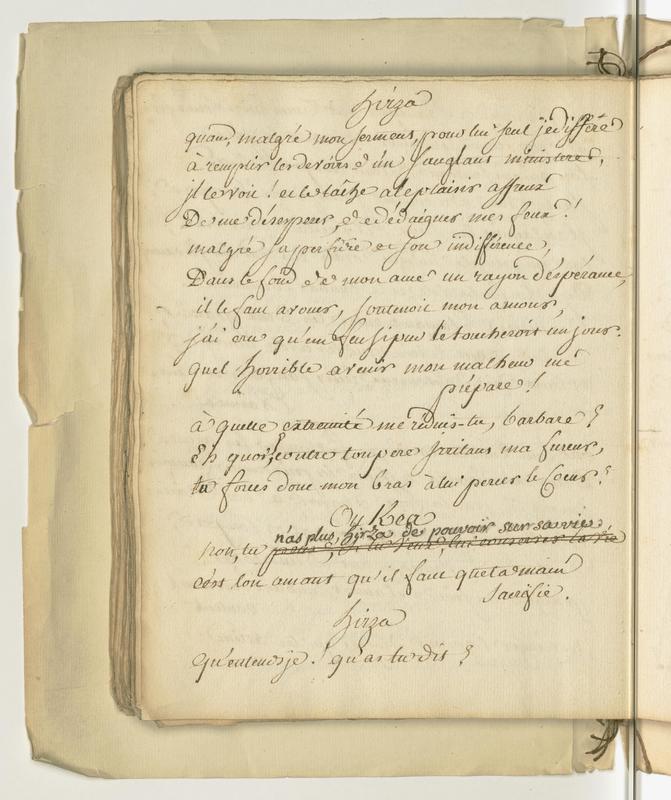 hirza
quand, malgré mon serment, pour lui seul je differe
à remplir les devoirs d'un sanglant ministere,
il le voit ! et le lâche a le plaisir affreux
De me désesperer, et de dédaigner mes feux !
malgré sa perfidie et son indifférence,
Dans le fond de mon ame un rayon d'espérance,
il le faut avouer, soutenoit mon amour,
j'ai cru qu'un feu si pur le toucheroit un jour.
quel horrible avenir mon malheur me
prépare !
à quelle extremité me réduis-tu, barbare ?
Eh quoi, contre ton pere irritant ma fureur,
tu forces donc mon bras à lui percer le Coeur ?
Oukea
n'as plus, hirza de pouvoir sur sa vie
non, tu peux, si tu veux, lui conserver la vie
c'est ton amant qu'il faut que ta main
sacrifie.
hirza
Qu'entends-je ! qu'as tu dit ?